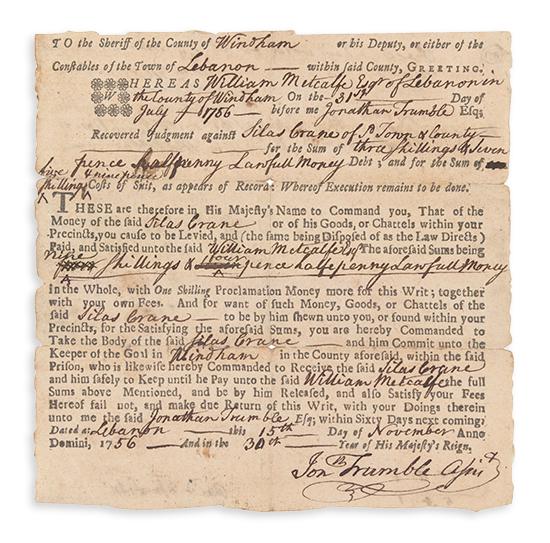 TO the Sheriff of the County of Windham or his Deputy, or either of the
Conſtables of the Town of Lebanon — within ſaid County, GREETING.
WHEREAS William Metcalfe Esqr. of Lebanon in
the County of Windham On the 31st Day of
July 1756 — before me Jonathan Trumble Eſq;
Recovered Judgment againſt Silas Crane of sd. Town & County —
— for the Sum of three shillings & Seven
pence halfpenny Lawfull Money Debt; and for the Sum of
five shillings & nine pence Coſts of Suit, as appears of Record: Whereof Execution remains to be done.
THESE are therefore in His Majeſty's Name to Command you, That of the
Money of the ſaid Silas Crane or of his Goods, or Chattels within your
Precincts, you cauſe to be Levied, and (the ſame being Diſpoſed of as the Law Directs)
Paid, and Satisfied unto the ſaid William Metcalfe Esqr The aforeſaid Sums being
nine shillings & four pence halfpenny Lawfull Money
in the Whole, with One Shilling Proclamation Money more for this Writ; together
with your own Fees. And for want of ſuch Money, Goods, or Chattels of the
ſaid Silas Crane — to be by him ſhewn unto you, or found within your
Precincts, for the Satisfying the aforeſaid Sums, you are hereby Commanded to
Take the Body of the ſaid Silas Crane — and him Commit unto the
Keeper of the Goal in Windham in the County aforeſaid, within the ſaid
Priſon, who is likewiſe hereby Commanded to Receive the ſaid Silas Crane
and him ſafely to Keep until he Pay unto the ſaid William Metcalfe the full
Sums above Mentioned, and be by him Releaſed, and alſo Satisfy your Fees
Hereof fail not, and make due Return of this Writ, with your Doings therein
unto the ſaid Jonathan Trumble Eſq; within Sixty Days next coming:
Dated at Lebanon — this 15th — Day of November Anno
Domini, 1756 — And in the 30th — Year of His Majeſty's Reign.
Jonth Trumble Assist